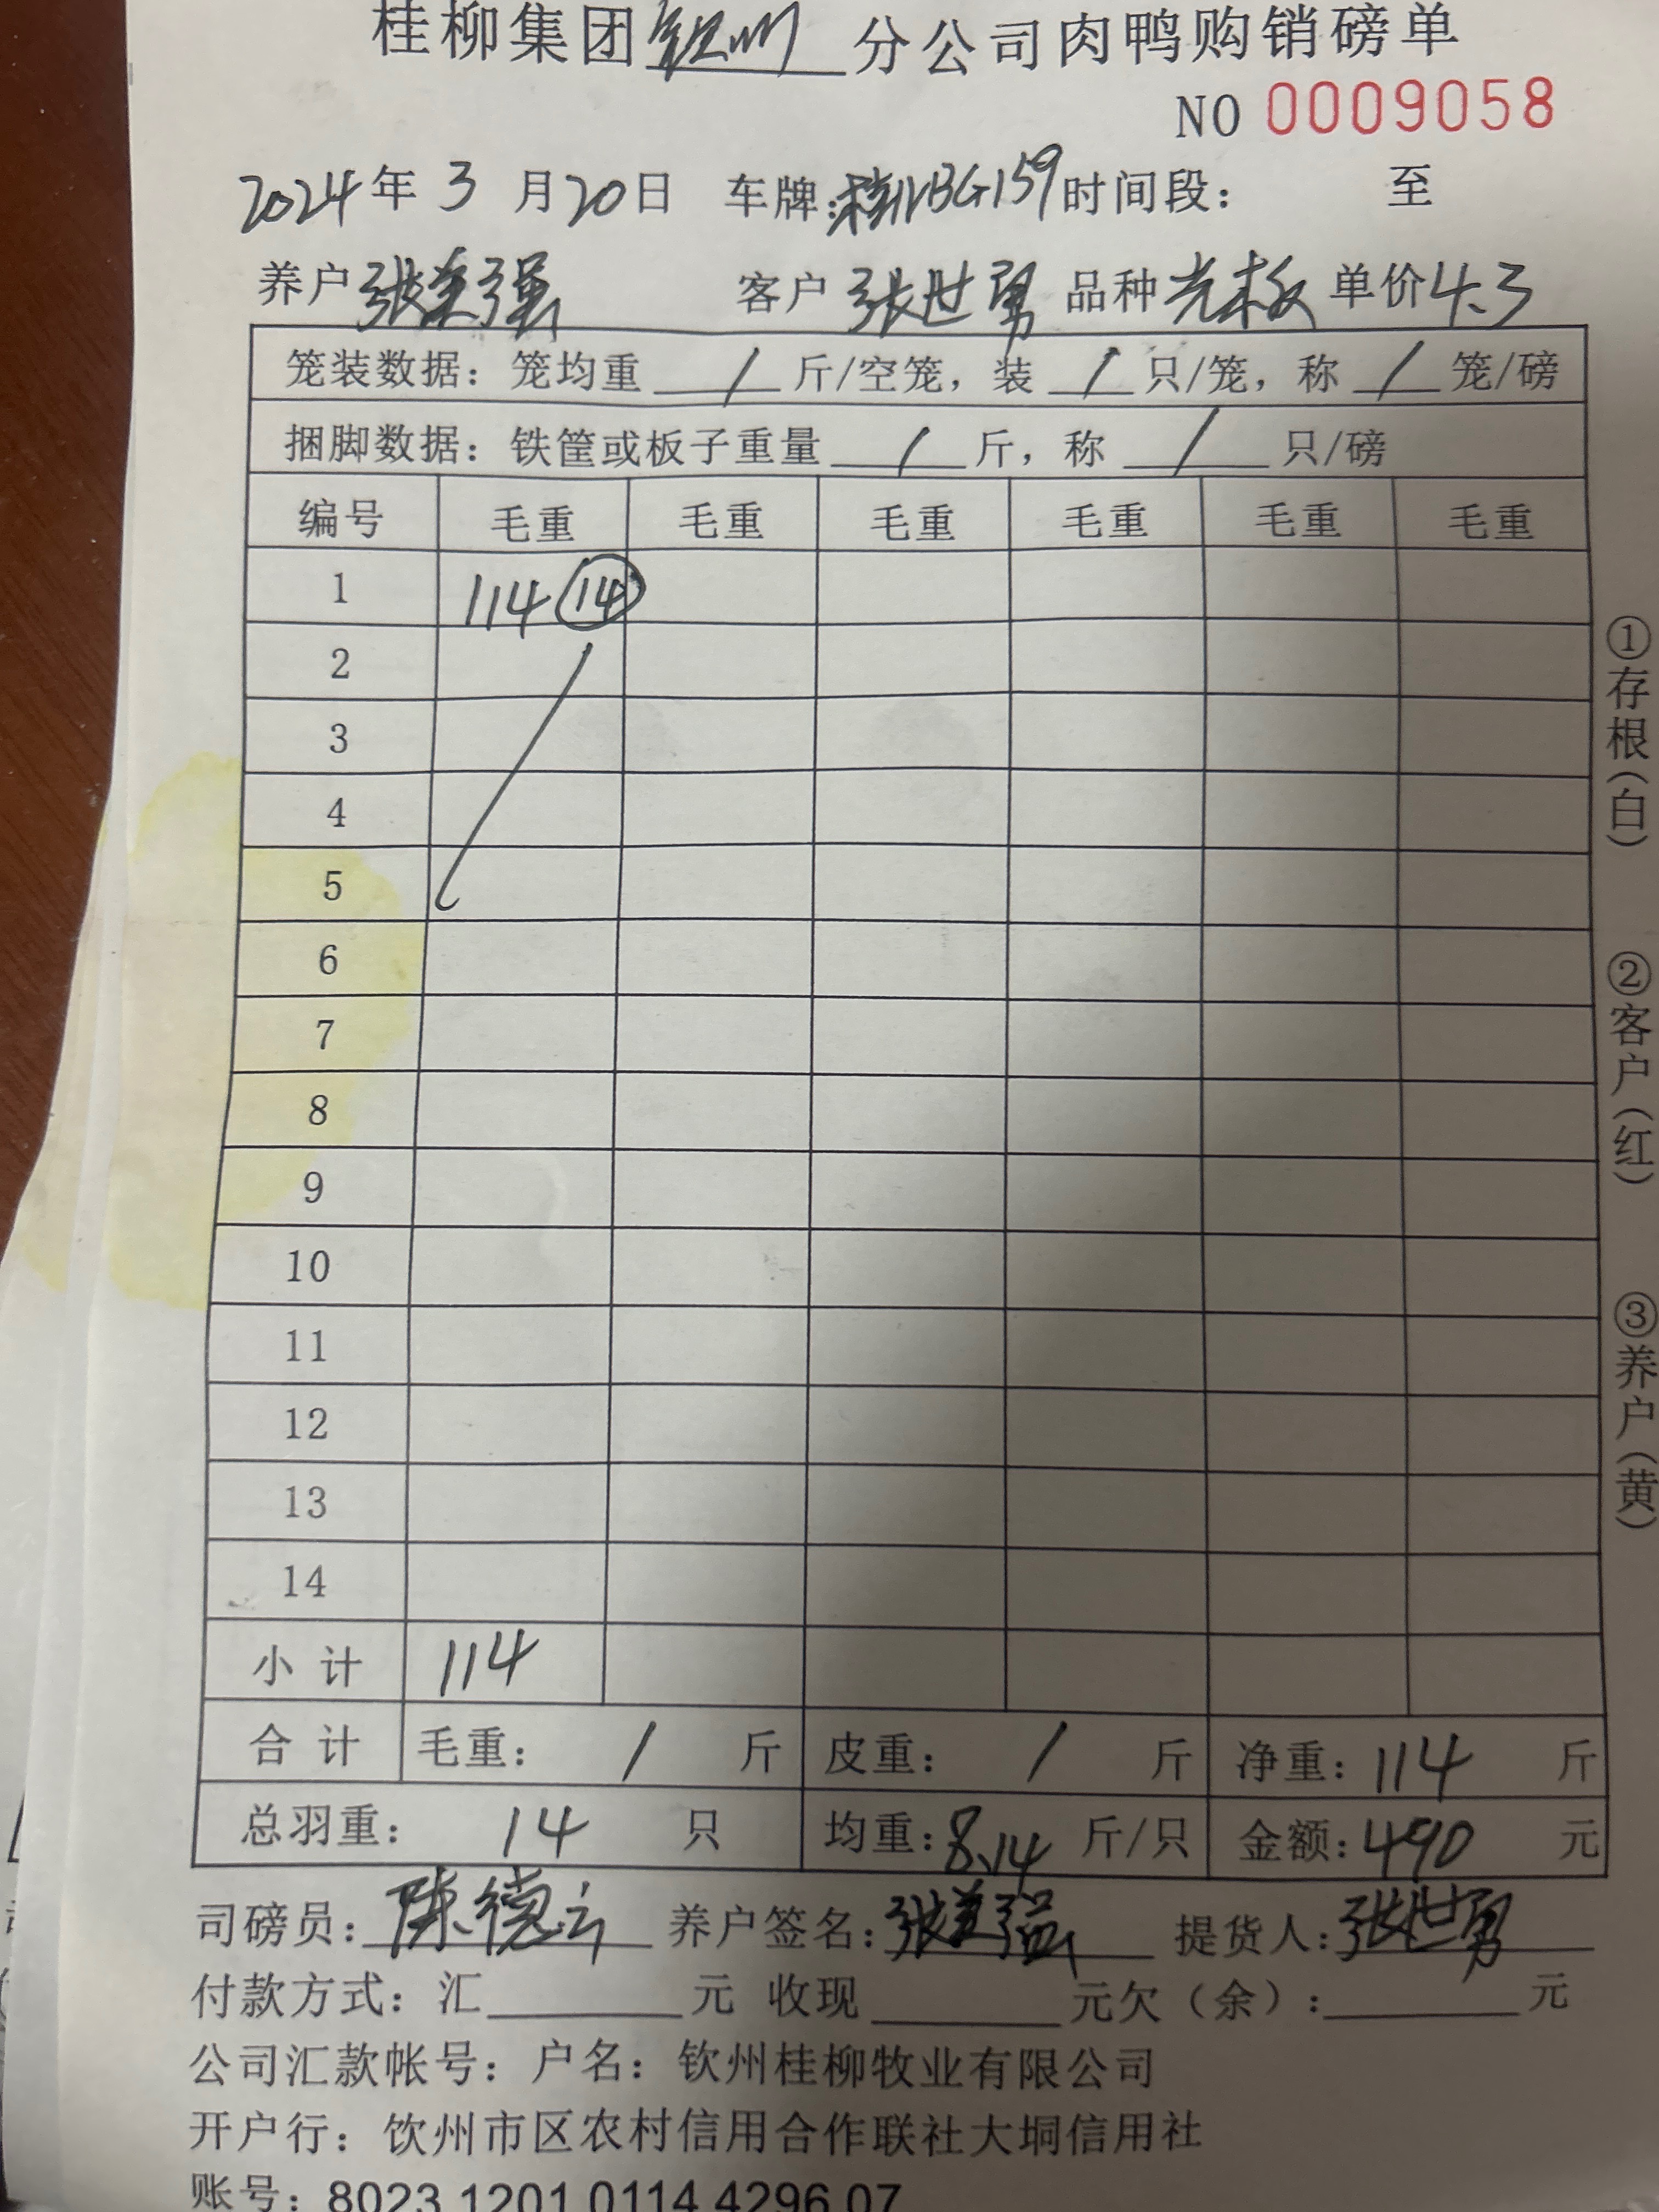 桂柳集团钦州分公司肉鸭购销磅单
NO 0009058
2024年3月20日 车牌:桂NBG159时间段: 至
养户张美强 客户张世勇 品种 单价4.3
笼装数据:笼均重/斤/空笼,装/只/笼,称/笼/磅
捆脚数据:铁筐或板子重量/斤,称/只/磅
编号 毛重 毛重 毛重 毛重 毛重 毛重
1 114 14
2
3
4
5
6
7
8
9
10
11
12
13
14
小计 114
合计 毛重: / 斤 皮重: / 斤 净重:114 斤
总羽重: 14 只 均重:8.14 斤/只 金额:490 元
司磅员:陈德云 养户签名:张美强 提货人:张世勇
付款方式:汇 元 收现 元欠(余): 元
公司汇款帐号:户名:钦州桂柳牧业有限公司
开户行:钦州市区农村信用合作联社大垌信用社
账号:8023 1201 0114 4296 07
①存根(白)
②客户(红)
③养户(黄)